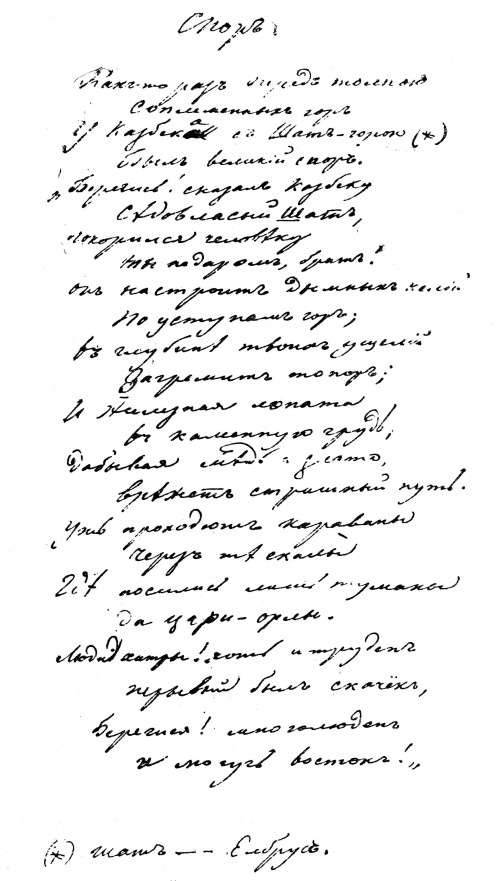 Споръ.
Какъ-то разъ передъ толпою
Соплеменныхъ горъ
У Казбека съ Шатъ-горою (*)
Былъ великій споръ.
„Берегись! сказалъ Казбеку
Сѣдовласый Шатъ,
Покорился человѣку
Ты не даромъ, братъ!
Онъ настроитъ дымныхъ келій
По уступамъ горъ;
Въ глубинѣ твоихъ ущелій
Загремитъ топоръ;
И желѣзная лопата
Въ каменную грудь,
Добывая мѣдь и злато,
Врѣжетъ страшный путь.
Ужъ проходятъ караваны
Черезъ тѣ скалы
Гдѣ носились лишь туманы
Да цари-орлы.
Люди хитры! хоть и труденъ
Первый былъ скачекъ,
Берегися! многолюденъ
И могучъ востокъ!„
(*) Шатъ — Елбрусъ.